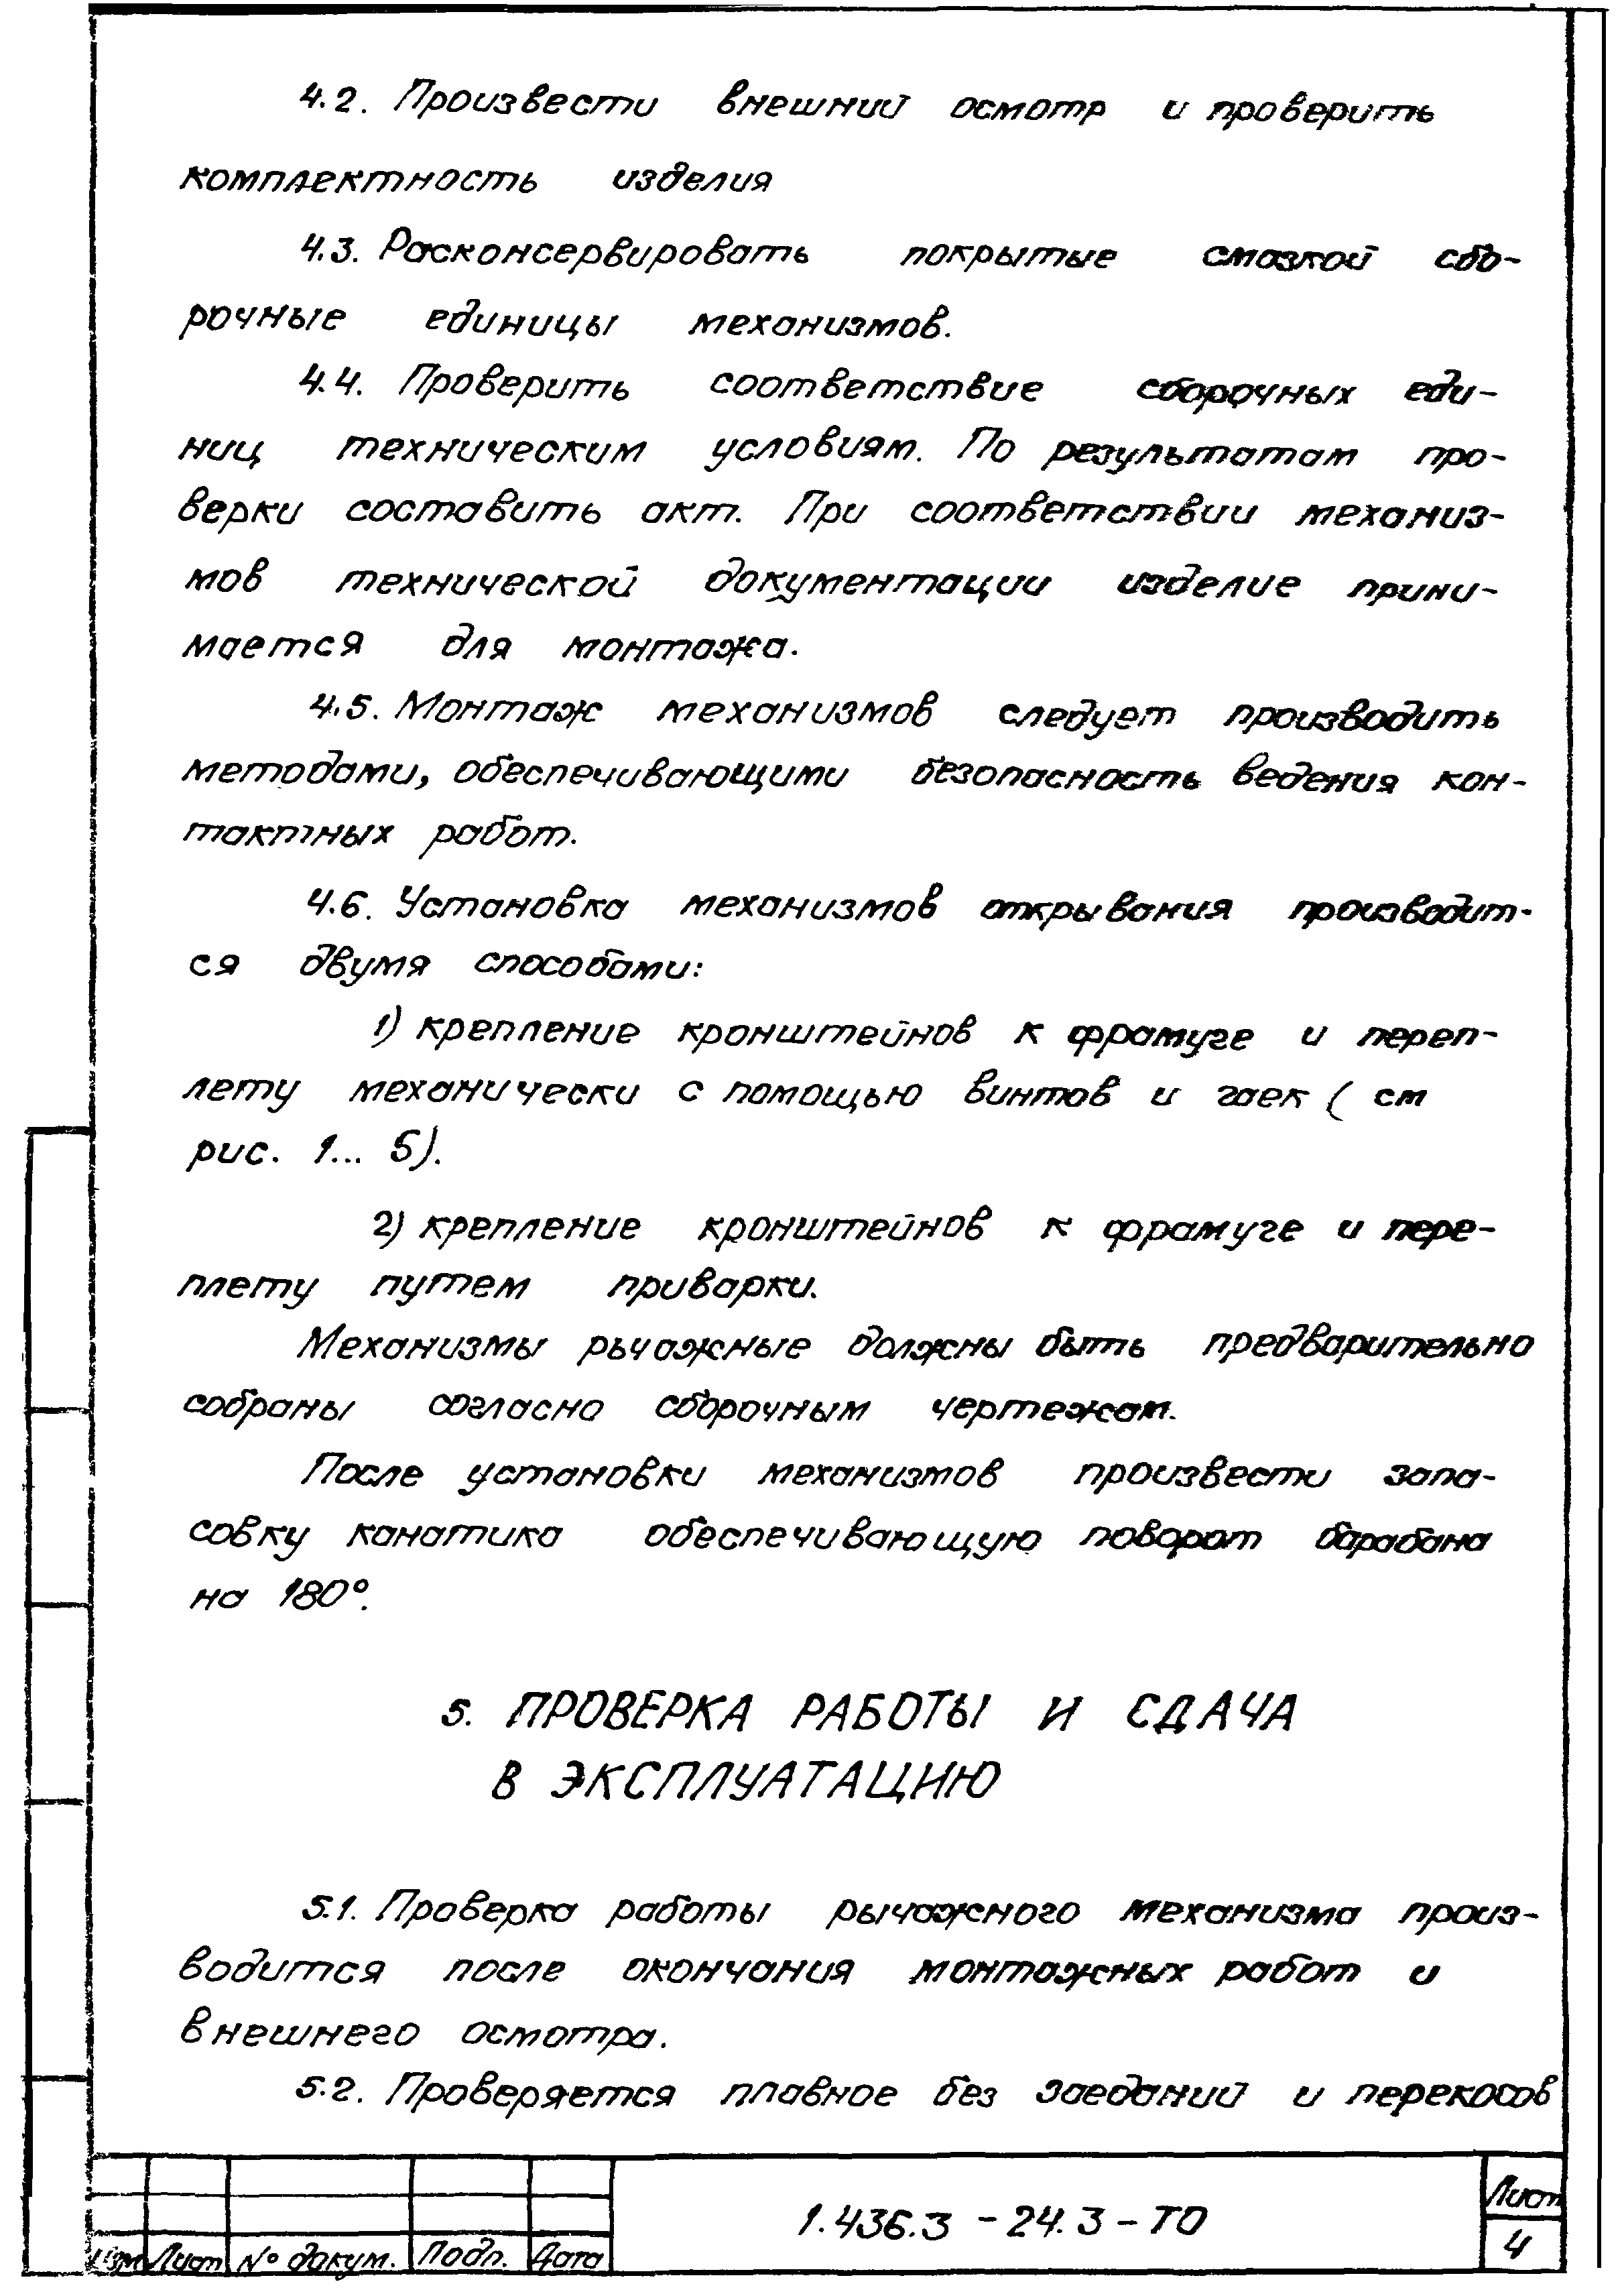 4.2. Произвести внешний осмотр и проверить
комплектность изделия
4.3. Расконсервировать покрытые смазкой сбо-
рочные единицы механизмов.
4.4. Проверить соответствие сборочных еди-
ниц техническим условиям. По результатам про-
верки составить акт. При соответствии механиз-
мов технической документации изделие прини-
мается для монтажа.
4.5. Монтаж механизмов следует производить
методами, обеспечивающими безопасность ведения кон-
тактных работ.
4.6. Установка механизмов открывания производит-
ся двумя способами:
1) крепление кронштейнов к фрамуге и переп-
лету механически с помощью винтов и гаек ( см
рис. 1... 5).
2) крепление кронштейнов к фрамуге и пере-
плету путем приварки.
Механизмы рычажные должны быть предварительно
собраны согласно сборочным чертежам.
После установки механизмов произвести запа-
совку канатика обеспечивающую поворот барабана
на 180°.
5. ПРОВЕРКА РАБОТЫ И СДАЧА
В ЭКСПЛУАТАЦИЮ
5.1. Проверка работы рычажного механизма произ-
водится после окончания монтажных работ и
внешнего осмотра.
5.2. Проверяется плавное без заеданий и перекосов
Изм Лист № докум. Подп. Дата
1.436.3 - 24.3 - ТО
Лист
4